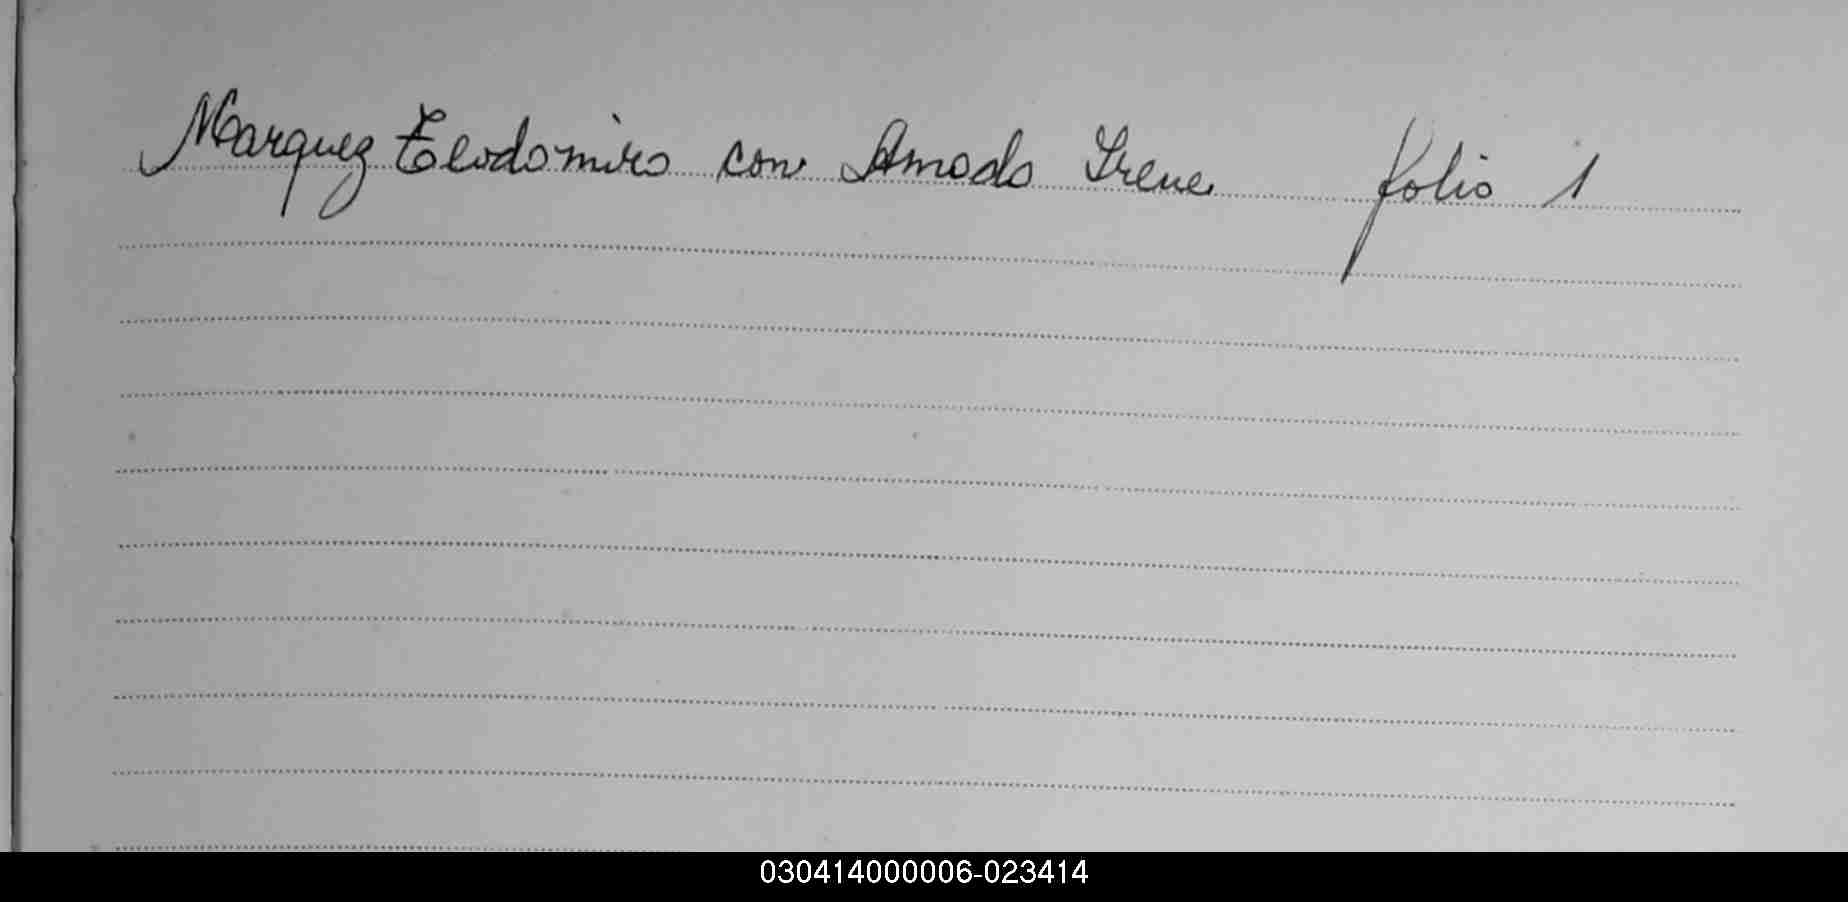 Marquez Teodomiro con Amado Irene folio 1
030414000006-023414